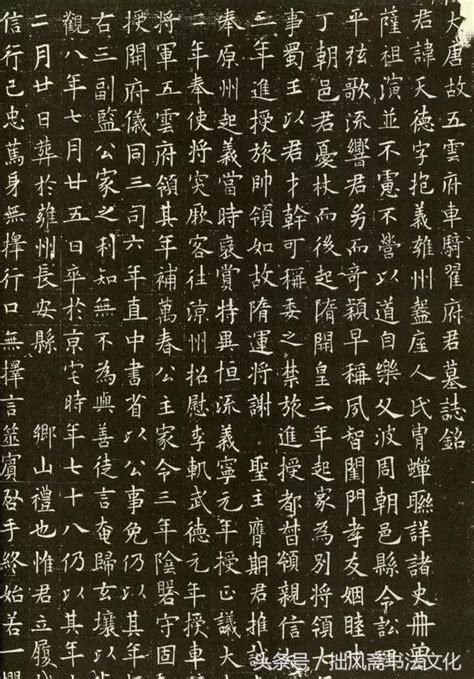 大唐故五雲府車騎翟府君墓誌銘
君諱天德字抱義雍州盩厔人氏冑蟬聯詳諸史冊
薩祖演並不憲不營以道自樂父波周朝邑縣令訟
平弦歌流響君而奇穎早稱夙智閨門孝友姻睦
丁朝邑君憂杖而後起隋開皇三年起家為別將領大
事蜀王以君才幹可稱委之禁旅進授都督領親信
三年進授旅帥領如故隋運將謝 聖主膺期君推誠
奉原州起義當時褒賞特異恒流義寧元年授正議大
二年奉使將突厥客往涼州招慰李軌武德元年授車
將軍五雲府領其年補萬春公主家令三年陰守固
授開府儀同三司六年直中書省以公事免仍以其年
右三副監公家之利知無不為與善徒言奄歸玄壤以
觀八年七月廿五日卒於京宅時年七十八仍以其年十
二月廿日葬於雍州長安縣 鄉山禮也惟君立履
信行己忠篤身無擇行口無擇言筮賓啟手終始若一
头条号/拙风斋书法文化